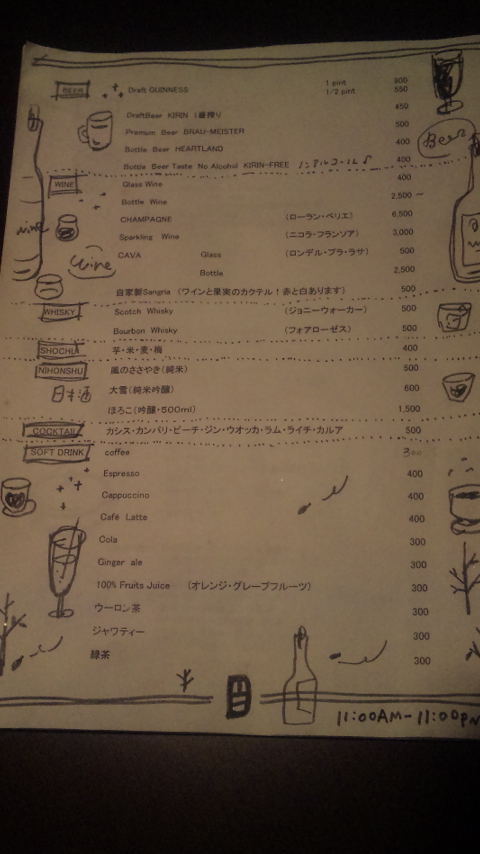 BEER Draft GUINNESS 1 pint 900
1/2 pint 550
DraftBeer KIRIN 1番搾り 450
Premium Beer BRAU-MEISTER 500
Bottle Beer HEARTLAND 400
Bottle Beer Taste No Alcohol KIRIN-FREE ノンアルコール♪ 400
Beer
WINE Glass Wine 400
Bottle Wine 2,500 ～
CHAMPAGNE (ローラン・ペリエ) 6,500
Sparkling Wine (ニコラ・フランソア) 3,000
wine
CAVA Glass (ロンデル・ブラ・ラサ) 500
Wine
Bottle 2,500
自家製Sangria (ワインと果実のカクテル！赤と白あります) 500
WHISKY Scotch Whisky (ジョニーウォーカー) 500
Bourbon Whisky (フォアローゼス) 500
SHOCHU 芋・米・麦・梅 400
NIHONSHU 風のささやき(純米) 500
日本酒 大雪(純米吟醸) 600
ほろこ(吟醸・500ml) 1,500
COCKTAIL カシス・カンパリ・ピーチ・ジン・ウオッカ・ラム・ライチ・カルア 500
SOFT DRINK coffee 300
Espresso 400
Cappuccino 400
Café Latte 400
Cola 300
Ginger ale 300
100% Fruits Juice (オレンジ・グレープフルーツ) 300
ウーロン茶 300
ジャワティー 300
緑茶 300
11:00AM-11:00PM